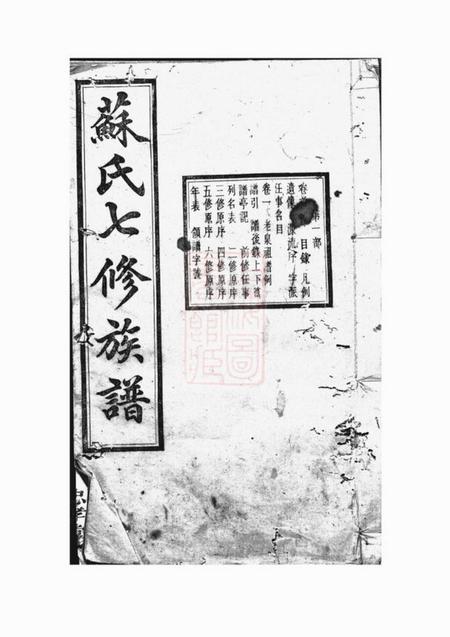 蘇氏七修族譜
第一部
目錄 凡例
遺像 源流序 字派
任事名目
卷一 老泉祖譜例
譜引 譜後錄上下篇
譜亭記 前修任事
列名表 二修原序
三修原序 四修原序
五修原序 六修原序
年表 領譜字號